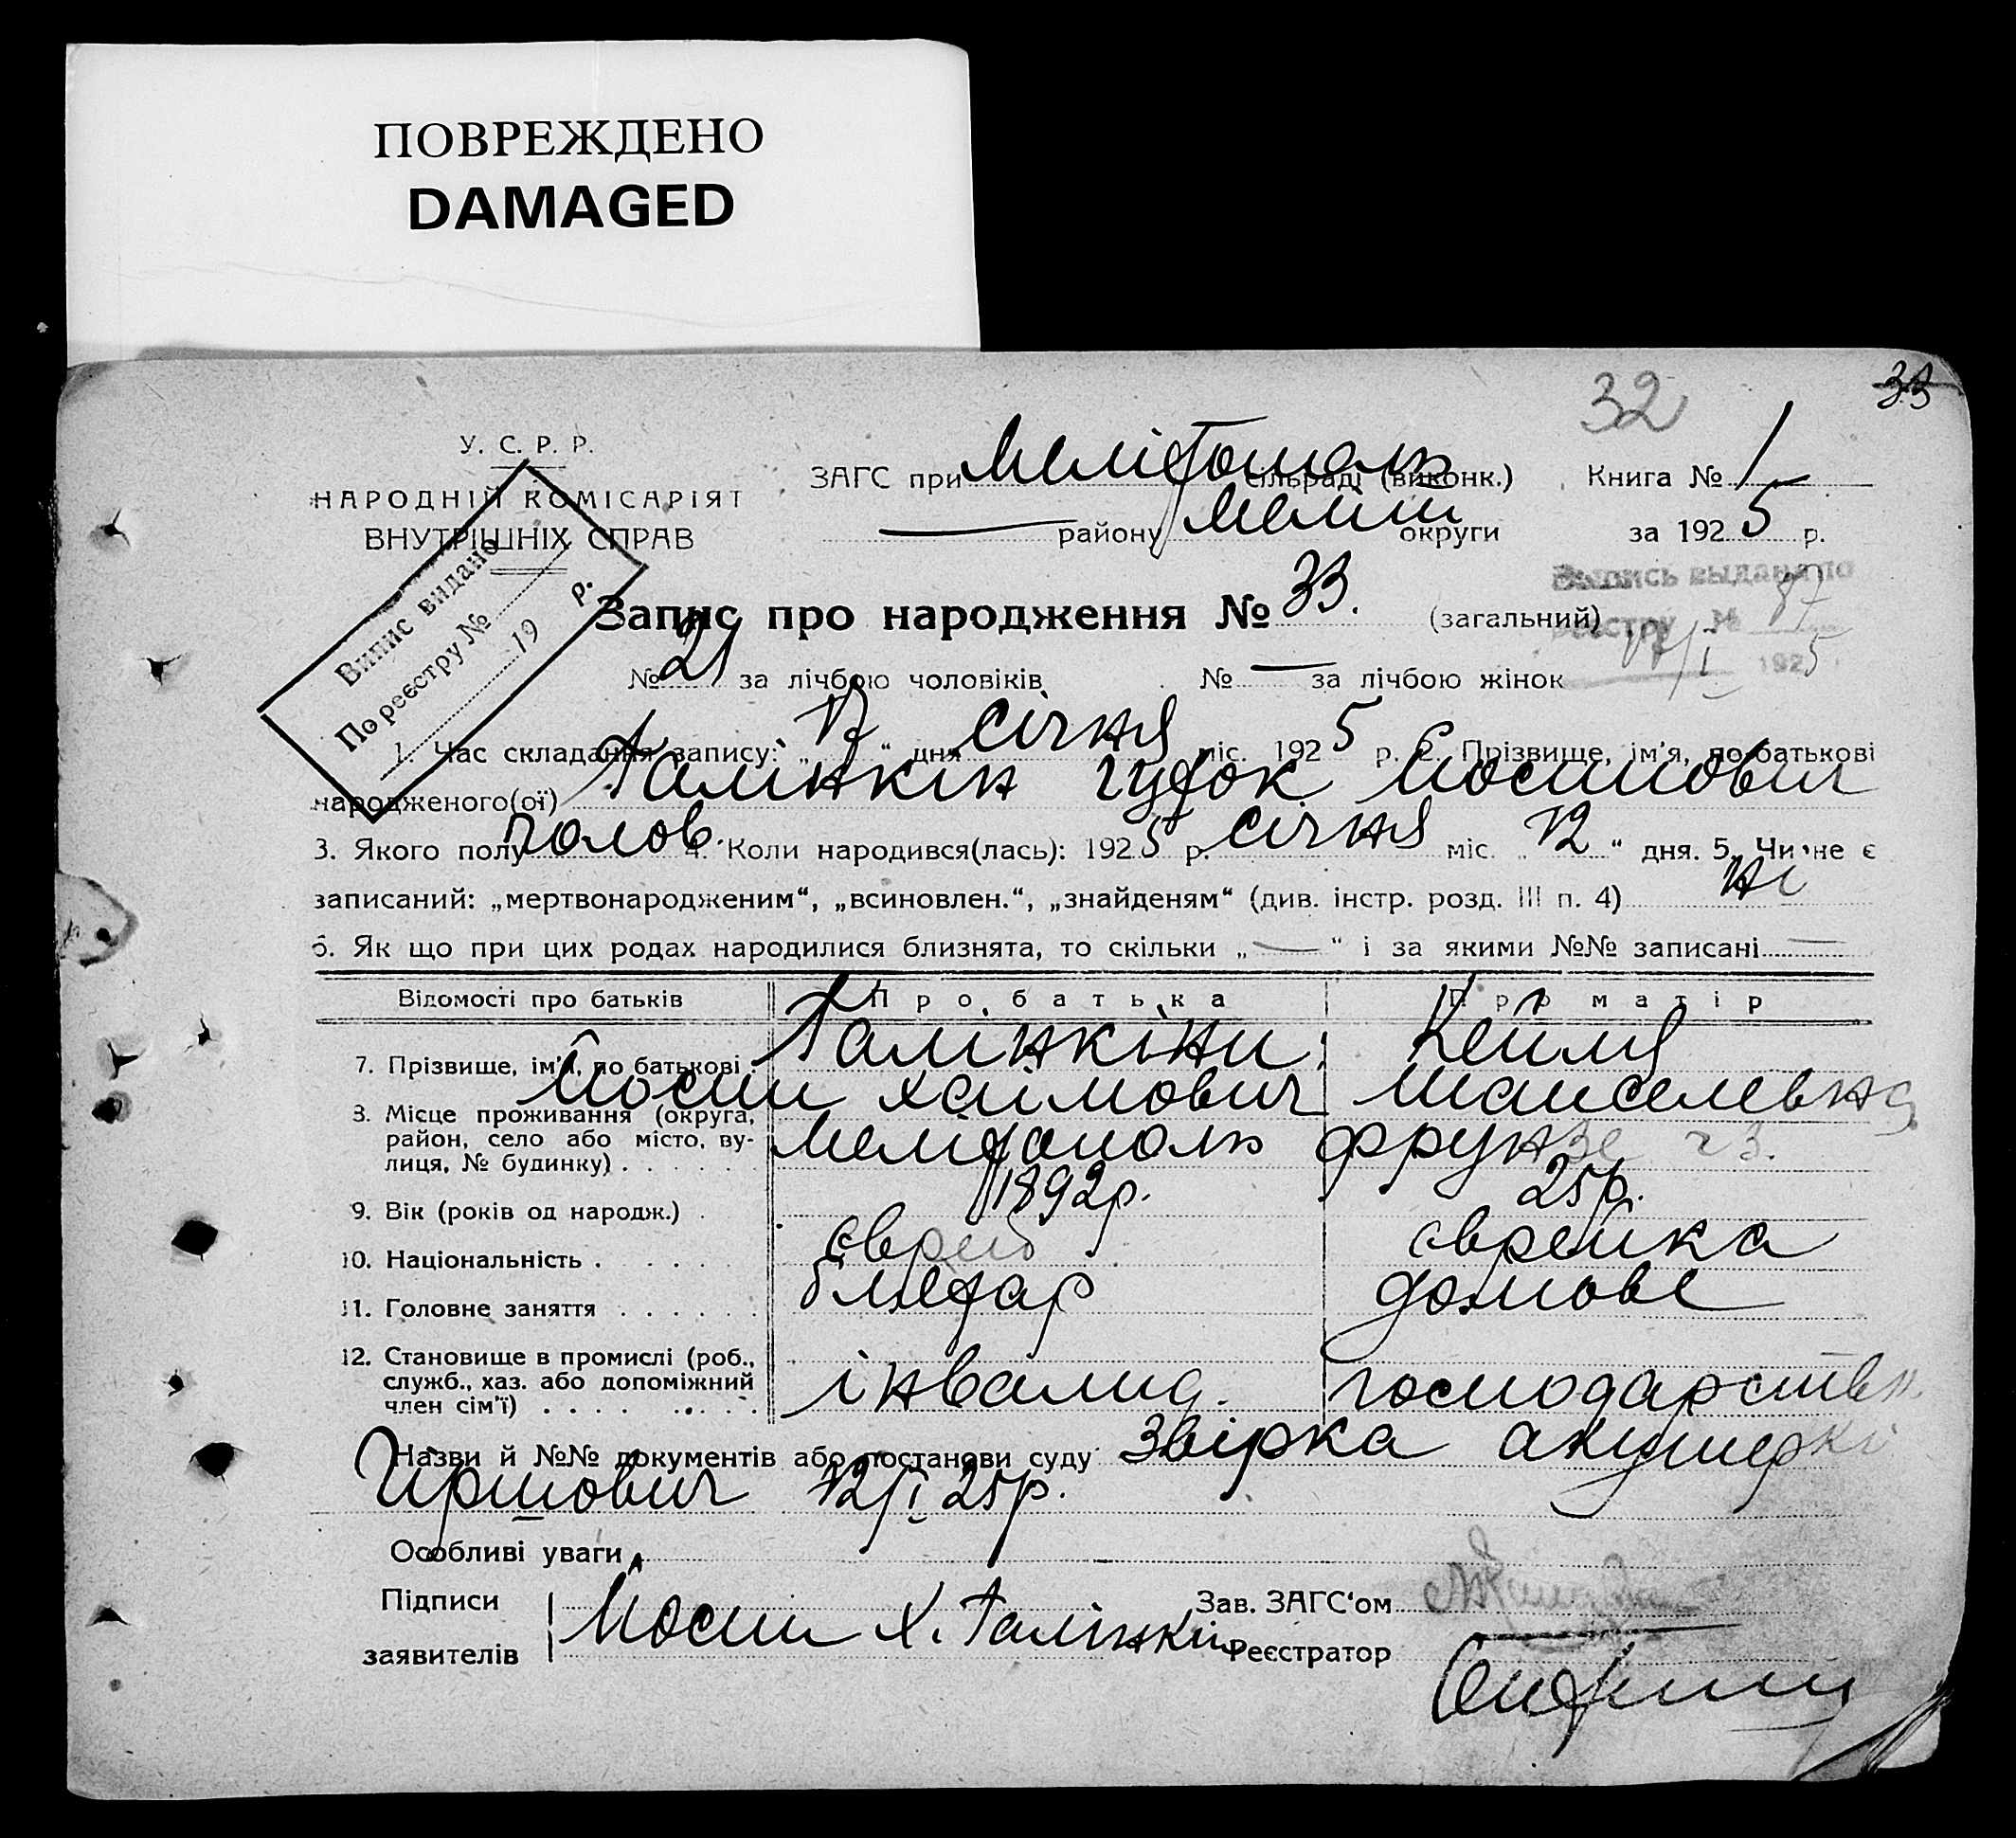 ПОВРЕЖДЕНО
DAMAGED
32 33
У. С. Р. Р.
НАРОДНІЙ КОМІСАРІЯТ
ВНУТРІШНІХ СПРАВ
ЗАГС при Мелітополь сільраді (виконк.) Книга № 1
— району Меліт округи за 1925 р.
Випис видано
По реєстру №
19 р.
Выпись выдана по
реестру № 87
17/I 1925
Запис про народження № 33. (загальний)
№ 21 за лічбою чоловіків № — за лічбою жінок
1. Час складання запису: „ 17 “ дня січня міс. 1925 р. 2. Прізвище, ім'я, по-батькові
народженого(ої) Галінкін Гуток Йосипович
3. Якого полу чолов. 4. Коли народився(лась): 1925 р. січня міс. „ 12 “ дня. 5. Чи не є
записаний: „мертвонародженим“, „всиновлен.“, „знайденям“ (див. інстр. розд. III п. 4) ні
6. Як що при цих родах народилися близнята, то скільки „ — “ і за якими №№ записані —
Відомості про батьків Про батька Про матір
7. Прізвище, ім'я, по батькові Галінкіни Кейля
Йосип Хаімович
8. Місце проживання (округа,
район, село або місто, вулиця, № будинку) Мелітополь Фрунзе
9. Вік (років од народж.) 1892р. 25р.
10. Національність єврей єврейка
11. Головне заняття бляхар домове
12. Становище в промислі (роб.,
служб., хаз. або допоміжний
член сім'ї) інвалид. господарств
Назви й №№ документів або постанови суду Звірка акушерки
Гіршович 12/I 25р.
Особливі уваги
Підписи Йосип Х. Галінкін Зав. ЗАГС'ом
заявителів Реєстратор